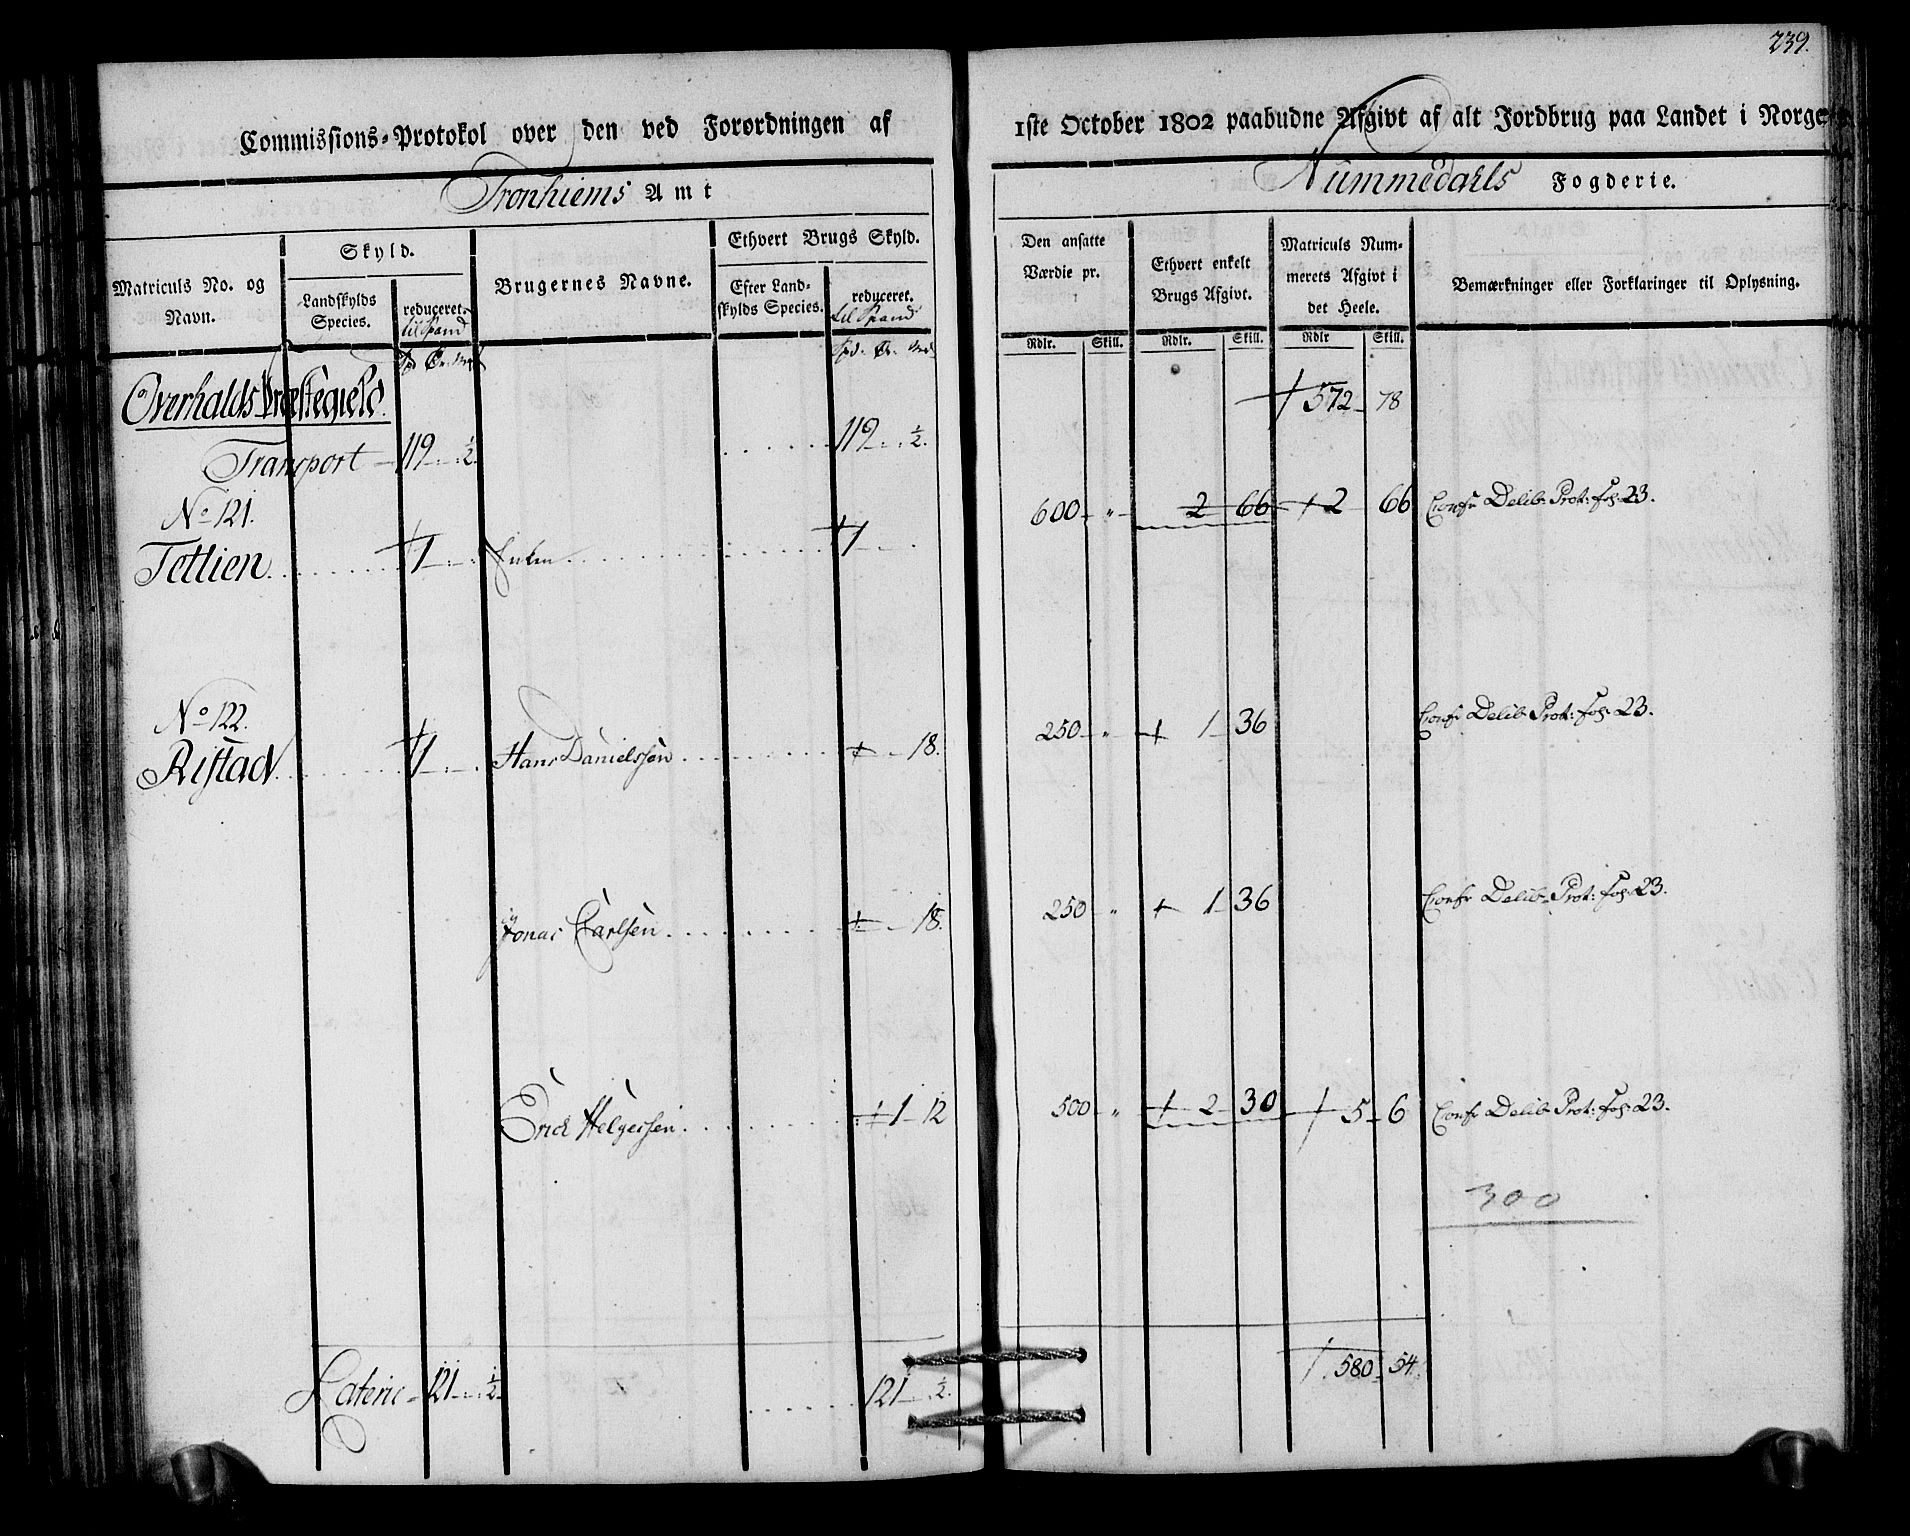 239.
Commissions-Protokol over den ved Forordningen af
1ste October 1802 paabudne Afgivt af alt Jordbrug paa Landet i Norge
Tronhiems Amt
Nummedahls Fogderie.
Matriculs No. og Navn.
Skyld.
Landskylds Species.
reduceret.
til Spand
Brugernes Navne.
Ethvert Brugs Skyld.
Efter Landskylds Species.
reduceret.
til Spand
Den ansatte Værdie pr.
Ethvert enkelt Brugs Afgivt.
Matriculs Nummerets Afgivt i det Heele.
Bemærkninger eller Forklaringer til Oplysning.
Rdlr. Skill. Rdlr. Skill. Rdlr Skill.
Overhalds Præstegield.
572 - 78
Transport - 119 - " ½ 119 - " ½.
No 121.
Tetlien 1 - " 1 - " 600 - " - 2 66 2 66 Confr Delib: Prot: fol: 23.
No 122.
Ristad 1 - " Hans Danielssen - 18. 250 - " 1 - 36 Confr Delib: Prot: fol: 23.
Jonas Carlsen - 18. 250 " 1 - 36 Confr Delib: Prot: fol: 23.
Erick Helgessen 1 - 12 500 - " 2 - 30 5 - 6 Confr Delib: Prot: fol: 23.
300
Laterie - 121 - " ½ 121 - " ½. 580 - 54.